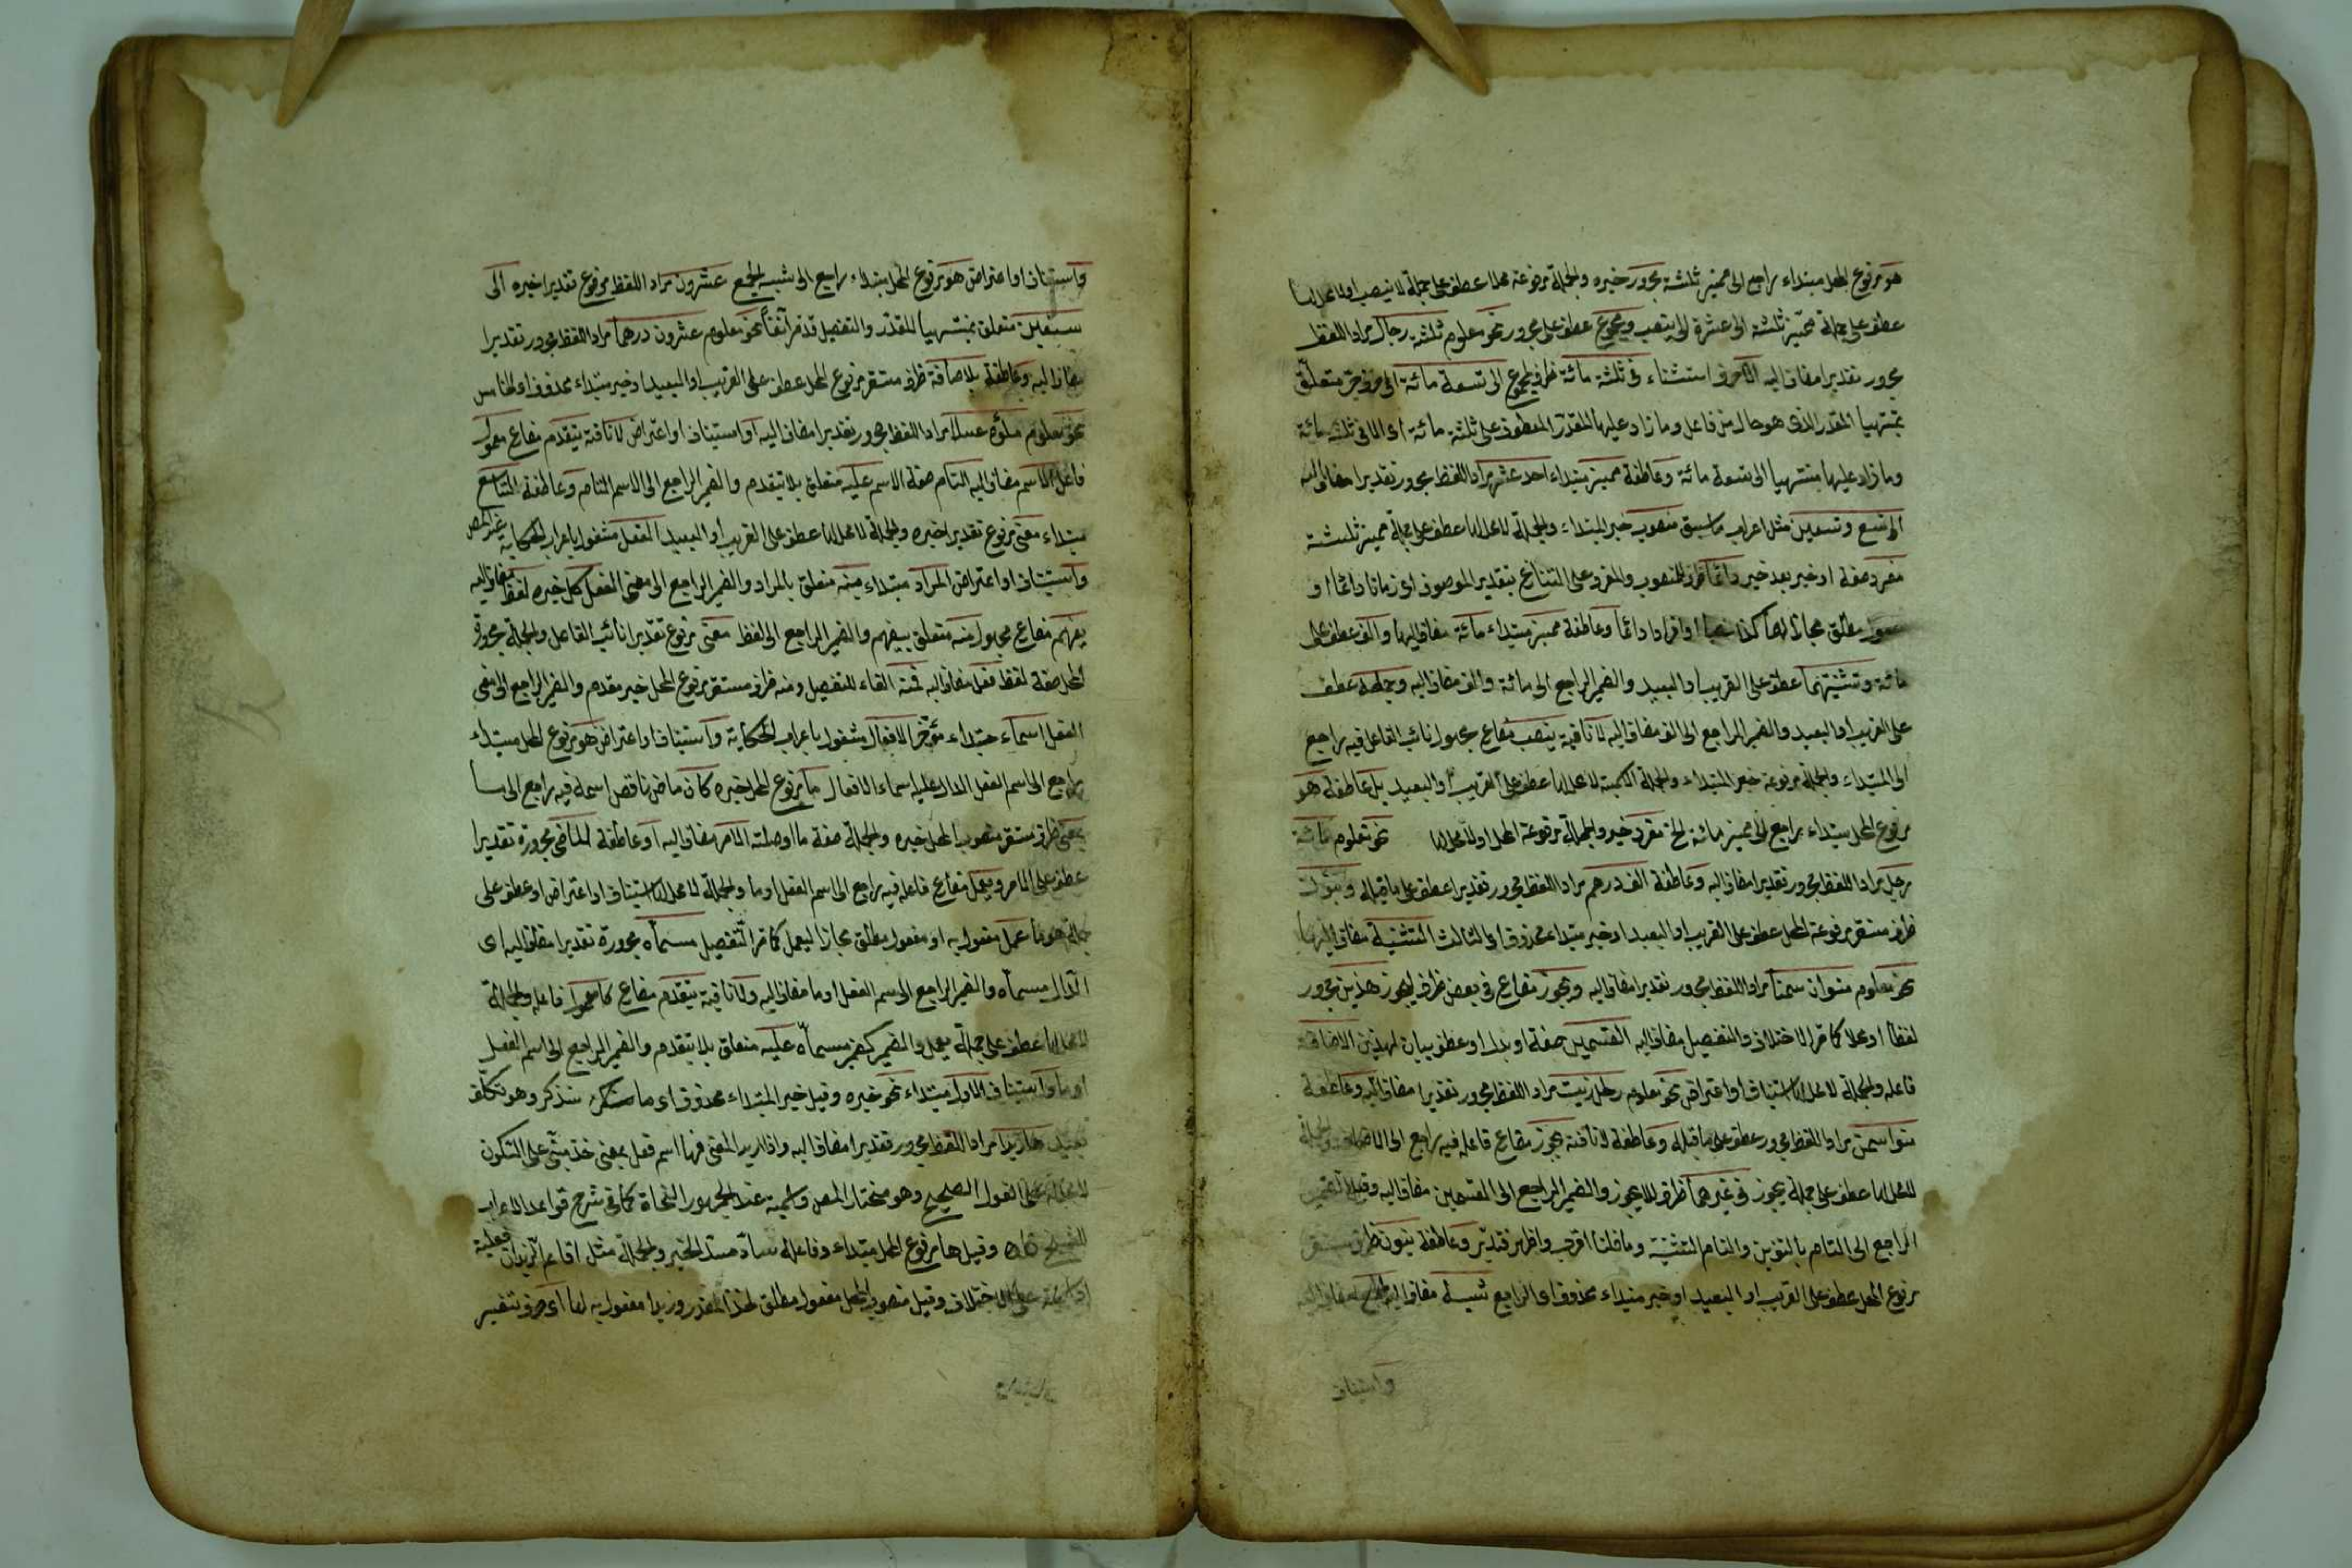 هو مرفوع المحل مبتداء راجع الى مميز ثلثة مجرور خبره والجملة مرفوعة محلا عطف على جملة لا ينصب اولا محل لها
عطف على جملة مميز ثلثة الى عشرة لا ينصب ومجموع عطف على مجرور نحو معلوم ثلثة رجال مراد اللفظ
مجرور تقديرا مضاف اليه الا حرف استثناء فى ثلثة مائة ظرف لمجموع الى تسعة مائة الى حرف جر متعلق
بمنتهيا المقدر الذى هو حال من فاعل وما زاد عليها المقدر المعطوف على ثلثة مائة اى الا فى ثلثة مائة
وما زاد عليها منتهيا الى تسعة مائة وعاطفة مميز مبتداء احد عشر مراد اللفظ مجرور تقديرا مضاف اليه
الى تسع وتسعين مثل اعراب ما سبق منصوب خبر المبتداء والجملة لا محل لها عطف على جملة مميز ثلثة
مفرد صفة او خبر بعد خبر دائما ظرف للمنصوب والمفرد على التنازع بتقدير الموصوف اى زمانا دائما او
مفعول مطلق مجازا لهما كذا نصبا او افرادا دائما وعاطفة مميز مبتداء مائة مضاف اليها والف عطف على
مائة وتثنيتهما عطف على القريب او البعيد والضمير الراجع الى مائة والف مضاف اليه وجمعه عطف
على القريب او البعيد والضمير الراجع الى الف مضاف اليه لا نافية ينصب مضارع مجهول نائب الفاعل فيه راجع
الى المبتداء والجملة مرفوعة خبر المبتداء والجملة الاسمية لا محل لها عطف على القريب او البعيد بل عاطفة هو
مرفوع المحل مبتداء راجع الى مميز مائة الخ مفرد خبره والجملة مرفوعة المحل اولا محل لها نحو معلوم مائة
رجل مراد اللفظ مجرور تقديرا مضاف اليه وعاطفة الف درهم مراد اللفظ مجرور تقديرا عطف على ما قبله وبنون
ظرف مستقر مرفوعة المحل عطف على القريب او البعيد او خبر مبتداء محذوف اى الثالث التثنية مضاف اليها
نحو معلوم منوان سمنا مراد اللفظ مجرور تقديرا مضاف اليه ويجوز مضارع فى بعض ظرف ليجوز هذين مجرور
لفظا او محلا كما مر الاختلاف والتفصيل مضاف اليه القسمين صفة او بدل او عطف بيان لهذين الاضافة
فاعله والجملة لا محل لها استيناف او اعتراض نحو معلوم رطل زيت مراد اللفظ مجرور تقديرا مضاف اليه وعاطفة
منوا سمن مراد اللفظ مجرور عطف على ما قبله وعاطفة لا نافية يجوز مضارع فاعله فيه راجع الى الاضافة والجملة
لا محل لها عطف على جملة يجوز فى غيرهما ظرف للا يجوز والضمير الراجع الى القسمين مضاف اليه وقيل الضمير
الراجع الى التام بالتنوين والتام التثنية وما قلنا اقرب واظهر فتدبر وعاطفة بنون ظرف مستقر
مرفوع المحل عطف على القريب او البعيد او خبر مبتداء محذوف اى الرابع شبه مضاف اليه الجمع مضاف اليه
واستيناف
واستيناف او اعتراض هو مرفوع المحل مبتداء راجع الى شبه الجمع عشرون مراد اللفظ مرفوع تقديرا خبره الى
تسعين متعلق بمنتهيا المقدر والتفصيل قد مر آنفا نحو معلوم عشرون درهما مراد اللفظ مجرور تقديرا
مضاف اليه وعاطفة بالاضافة ظرف مستقر مرفوع المحل عطف على القريب او البعيد او خبر مبتداء محذوف اى الخامس
نحو معلوم ملؤه عسلا مراد اللفظ مجرور تقديرا مضاف اليه او استيناف او اعتراض لا نافية يتقدم مضارع معمول
فاعله الاسم مضاف اليه التام صفة الاسم عليه متعلق بلا يتقدم والضمير الراجع الى الاسم التام وعاطفة التاسع
مبتداء معنى مرفوع تقديرا خبره والجملة لا محل لها عطف على القريب او البعيد الفعل مشغول باعراب الحكاية
واستيناف او اعتراض المراد مبتداء منه متعلق بالمراد والضمير الراجع الى معنى الفعل كل خبره لفظ مضاف اليه
يفهم مضارع مجهول منه متعلق بيفهم والضمير الراجع الى لفظ معنى مرفوع تقديرا نائب الفاعل والجملة مجرورة
المحل صفة لفظ فعل مضاف اليه فمنه الفاء للتفصيل ومنه ظرف مستقر مرفوع المحل خبر مقدم والضمير الراجع الى معنى
الفعل اسماء مبتداء مؤخر الافعال مشغول باعراب الحكاية واستيناف او اعتراض هو مرفوع المحل مبتداء
راجع الى اسم الفعل الدال عليه اسماء الافعال ما مرفوع المحل خبره كان ماض ناقص اسمه فيه راجع الى ما
بمعنى ظرف مستقر منصوب المحل خبره والجملة صفة ما او صلته الامر مضاف اليه او عاطفة الماضى مجرورة تقديرا
عطف على الامر ويعمل مضارع فاعله فيه راجع الى اسم الفعل او ما والجملة لا محل لها استيناف او اعتراض او عطف على
جملة هو ما عمل مفعول به او مفعول مطلق مجازا ليعمل كما مر التفصيل مسماه مجرورة تقديرا مضاف اليه اى
الدال مسماه والضمير الراجع الى اسم الفعل او ما مضاف اليه ولا نافية يتقدم مضارع كامعمول فاعله والجملة
لا محل لها عطف على جملة يعمل والضمير كضمير مسماه عليه متعلق بلا يتقدم والضمير الراجع الى اسم الفعل
او ما واستيناف الاول مبتداء نحو خبره وقيل خبر المبتداء محذوف اى ما سنذكر وهو تكلف
بعيد ها زيدا مراد اللفظ مجرور تقديرا مضاف اليه واذا اريد المعنى فها اسم فعل بمعنى خذ مبنى على السكون
لا محل له على القول الصحيح وهو مختار المص وعند الجمهور النحاة كما فى شرح قواعد الاعراب
وقيل ها مرفوع المحل مبتداء وفاعله ساد مسد الخبر والجملة مثل اقائم الزيدان فعلية
الاختلاف وقيل منصوب المحل مفعول مطلق لخذ المقدر وزيدا مفعول به لها اى حرف تفسير